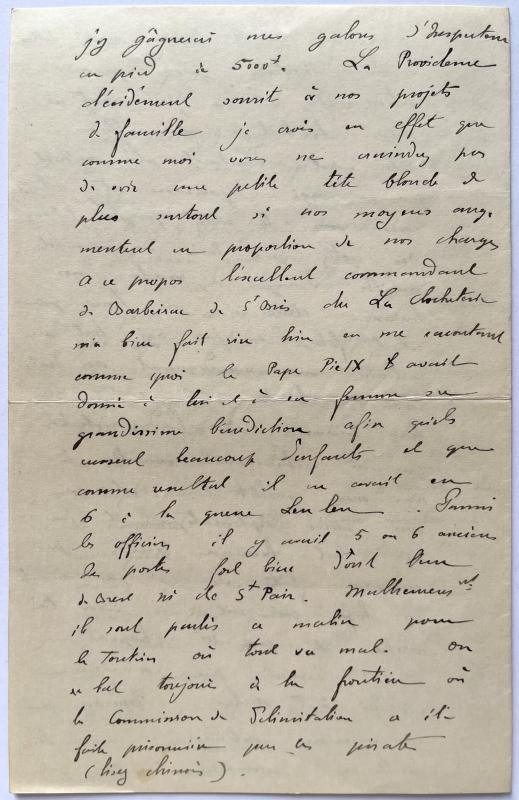 j'y gagnerai mes galons d'Inspecteur
en pied à 5000f. La Providence
décidément sourit à nos projets
de famille je crois en effet que
comme moi vous ne craindrez pas
de voir une petite tête blonde de
plus surtout si nos moyens aug-
mentent en proportion de nos charges
A ce propos l'excellent commandant
de Barbeirac de St Bris du La Clocheterie
m'a bien fait rire hier en me racontant
comme quoi le Pape Pie IX avait
donné à lui et à sa femme sa
grandissime bénédiction afin qu'ils
eussent beaucoup d'enfants et que
comme résultat il en avait eu
6 à la queue Leu leu. Parmi
les officiers il y avait 5 ou 6 anciens
des postes fort bien dont l'un
de Brest ni de St Pair. Malheureust
ils sont partis ce matin pour
le Tonkin où tout va mal. On
se bat toujours à la frontière où
la Commission de Délimitation a été
faite prisonnière par les pirates
(lisez chinois).